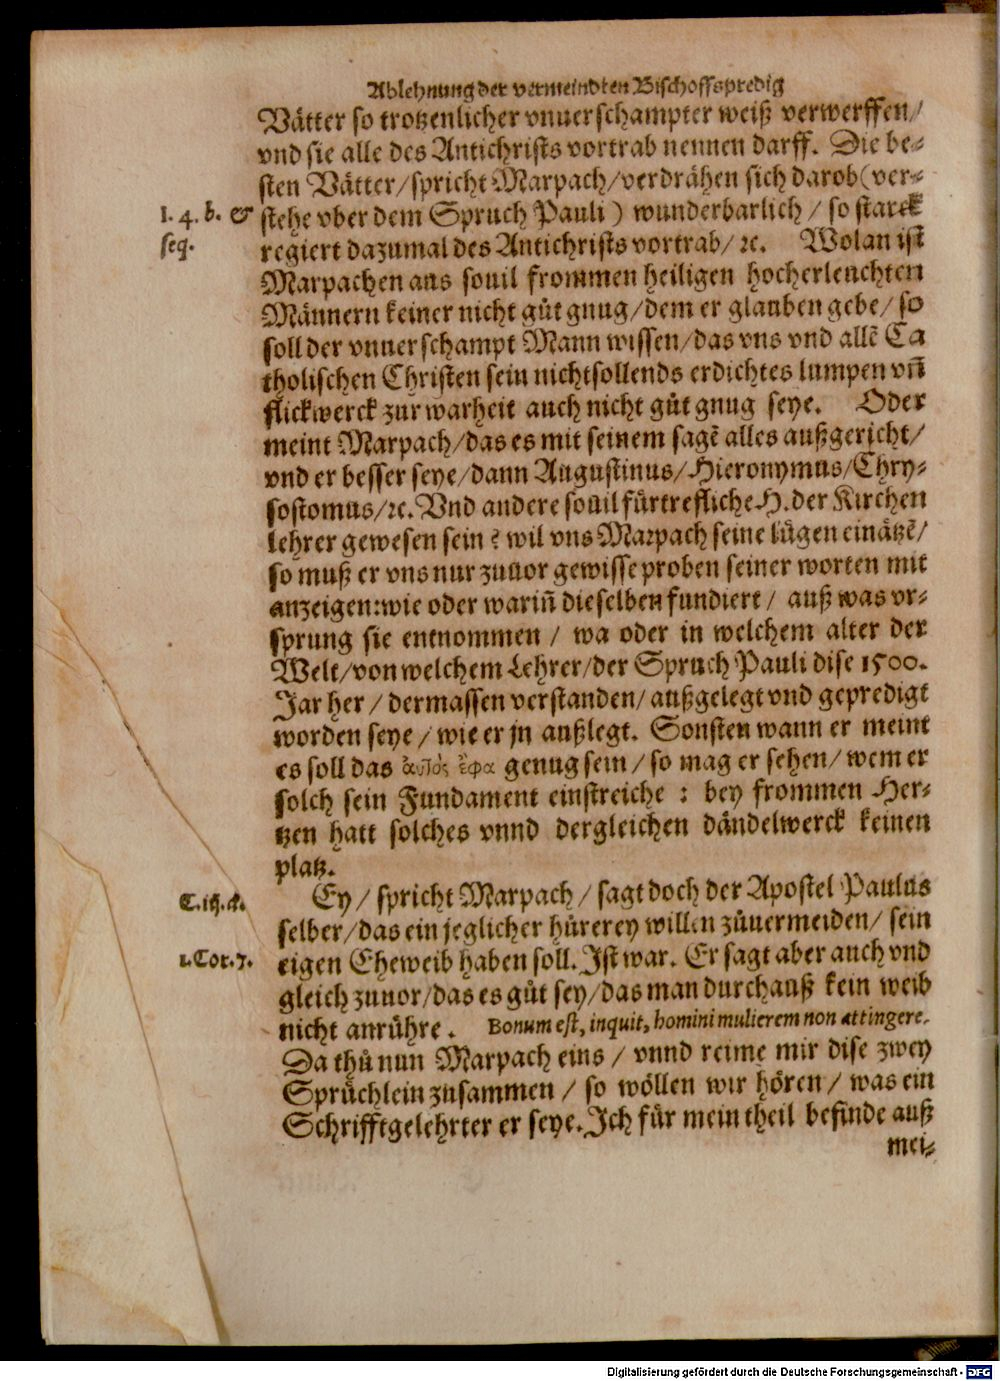 Ablehnung der vermeindten Bischoffspredig
Vätter so trotzenlicher vnuerschampter weiß verwerffen/
vnd sie alle des Antichrists vortrab nennen darff. Die be-
sten Vätter/spricht Marpach/verdrähen sich darob (ver-
I. 4. b. & stehe vber dem Spruch Pauli) wunderbarlich / so starck
seq. regiert dazumal des Antichrists vortrab/ ꝛc. Wolan ist
Marpachen aus souil frommen heiligen hocherleuchten
Männern keiner nicht gůt gnug/dem er glauben gebe/ so
soll der vnuerschampt Mann wissen/das vns vnd allẽ Ca
tholischen Christen sein nichtsollends erdichtes lumpen vñ
flickwerck zur warheit auch nicht gůt gnug seye. Oder
meint Marpach/das es mit seinem sagẽ alles außgericht/
vnd er besser seye/dann Augustinus/Hieronymus/Chry-
sostomus/ꝛc. Vnd andere souil fürtrefliche H. der Kirchen
lehrer gewesen sein? wil vns Marpach seine lügen einätzẽ/
so muß er vns nur zuuor gewisse proben seiner worten mit
anzeigen: wie oder wariñ dieselben fundiert / auß was vr-
sprung sie entnommen / wa oder in welchem alter der
Welt/von welchem Lehrer/der Spruch Pauli dise 1500.
Jar her / dermassen verstanden/außgelegt vnd gepredigt
worden seye / wie er jn außlegt. Sonsten wann er meint
es soll das ἀυτὸς ἔφα genug sein / so mag er sehen/ wem er
solch sein Fundament einstreiche : bey frommen Her-
tzen hatt solches vnnd dergleichen dändelwerck keinen
platz.
Ey / spricht Marpach / sagt doch der Apostel Paulus
selber/das ein jeglicher hůrerey willen zůuermeiden/ sein
1. Cor. 7. eigen Eheweib haben soll. Ist war. Er sagt aber auch vnd
gleich zuuor/das es gůt sey/das man durchauß kein weib
nicht anrühre. Bonum est, inquit, homini mulierem non attingere.
Da thů nun Marpach eins / vnnd reime mir dise zwey
Sprüchlein zusammen / so wöllen wir hören / was ein
Schrifftgelehrter er seye. Ich für mein theil befinde auß
mei-
Digitalisierung gefördert durch die Deutsche Forschungsgemeinschaft - DFG